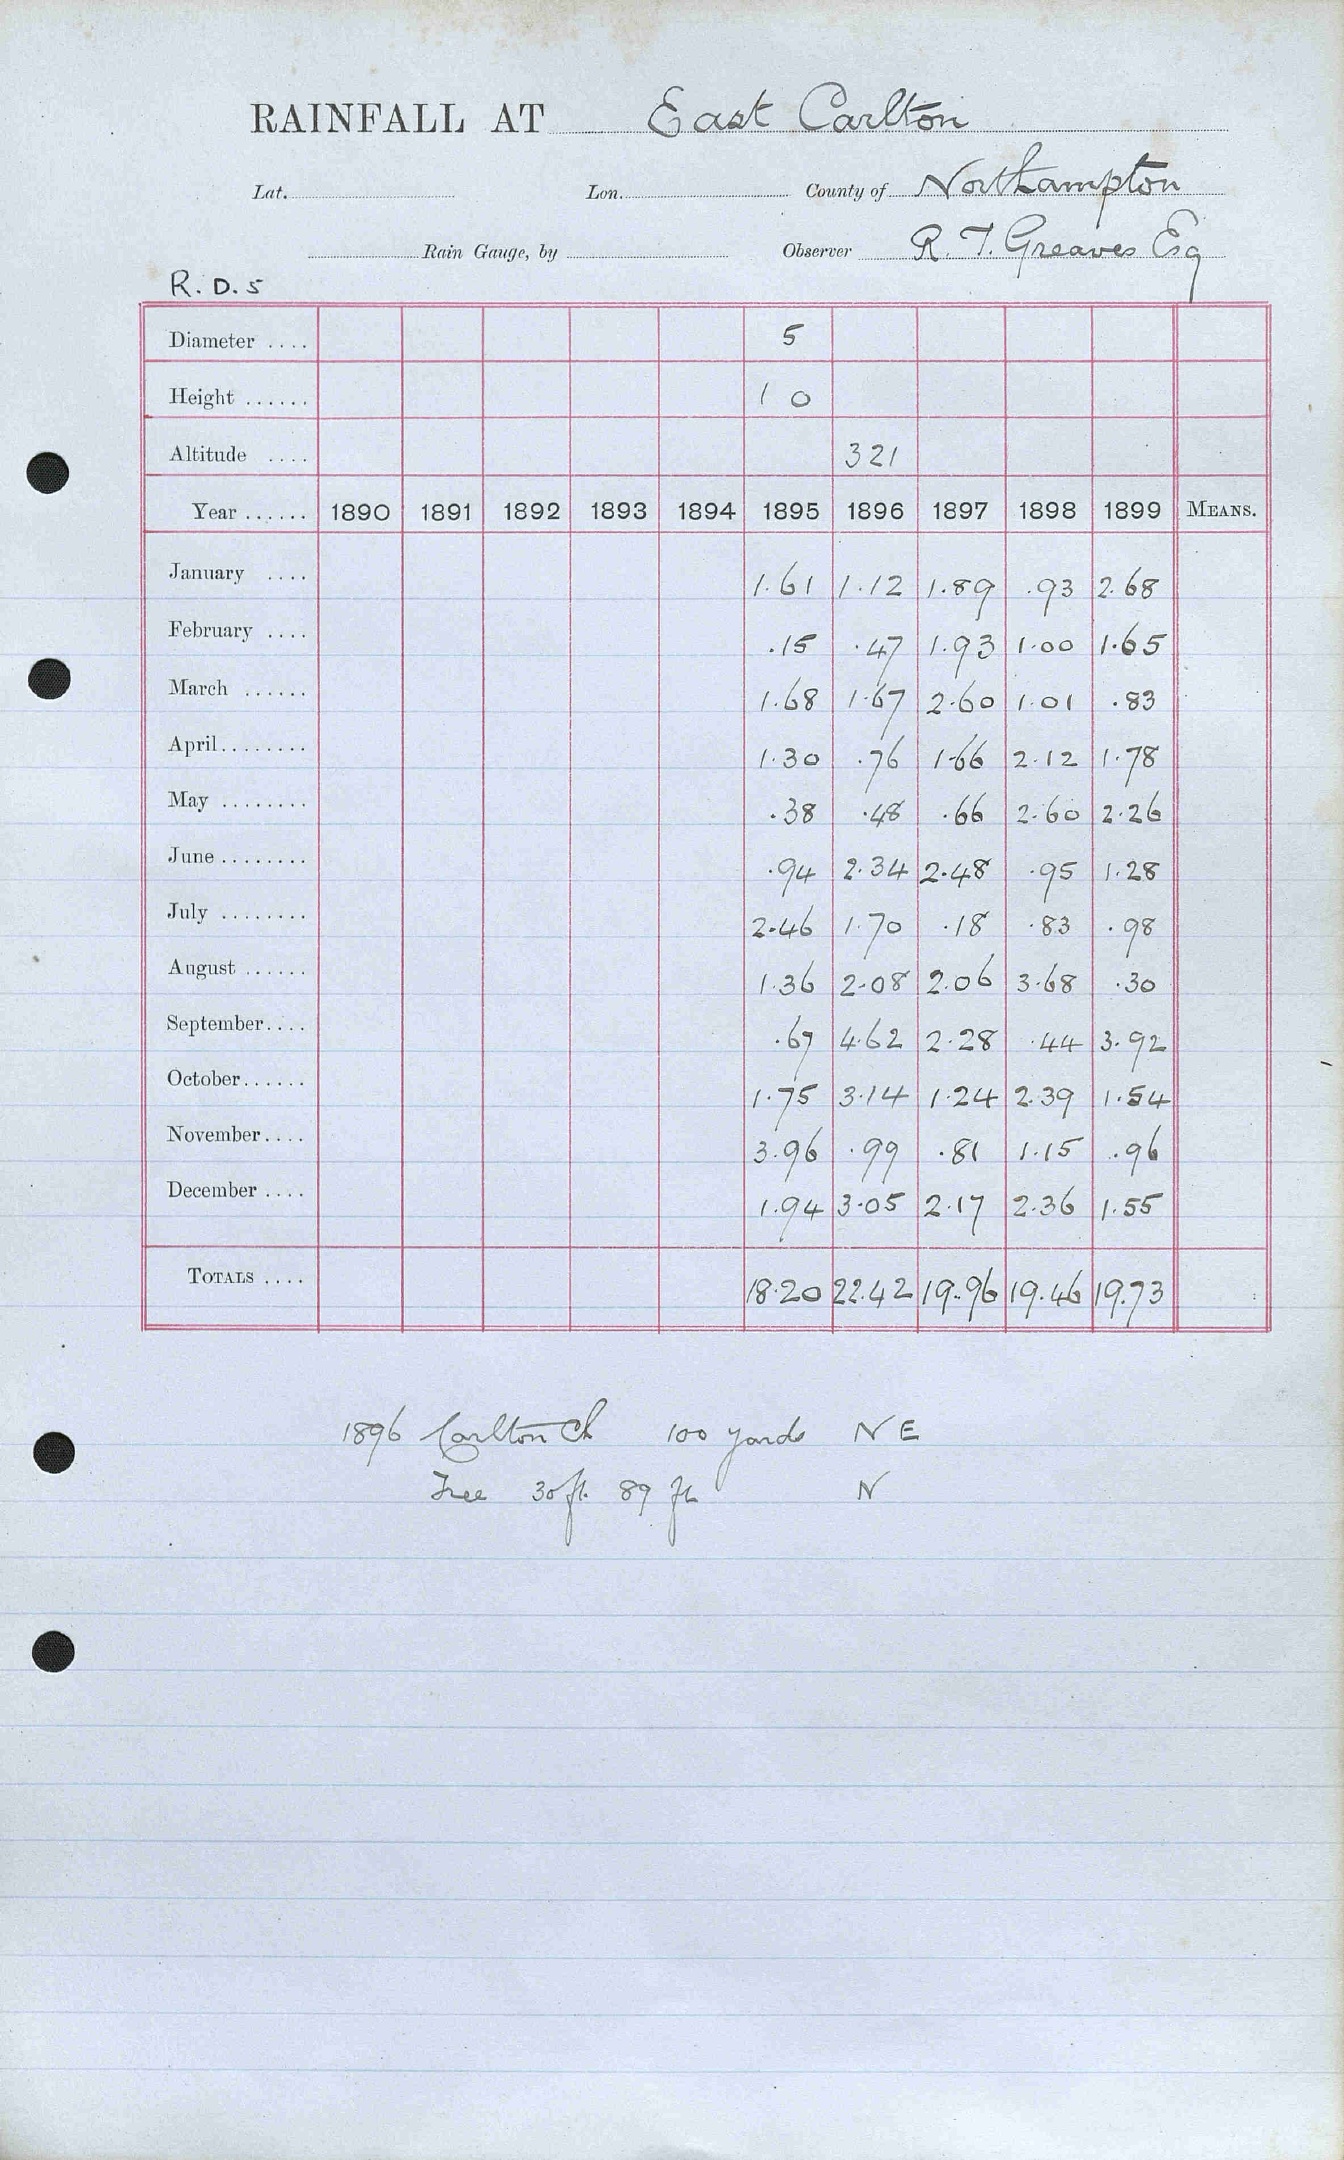 RAINFALL AT East Carlton
Lat. Lon. County of Northampton
Rain Gauge, by Observer R. T. Greaves Esq
R. D. 5
Diameter .... 5
Height ...... 1 0
Altitude .... 321
Year ...... 1890 1891 1892 1893 1894 1895 1896 1897 1898 1899 MEANS.
January .... 1.61 1.12 1.89 .93 2.68
February .... .15 .47 1.93 1.00 1.65
March ...... 1.68 1.67 2.60 1.01 .83
April........ 1.30 .76 1.66 2.12 1.78
May ........ .38 .48 .66 2.60 2.26
June ........ .94 2.34 2.48 .95 1.28
July ........ 2.46 1.70 .18 .83 .98
August ...... 1.36 2.08 2.06 3.68 .30
September.... .67 4.62 2.28 .44 3.92
October...... 1.75 3.14 1.24 2.39 1.54
November.... 3.96 .99 .81 1.15 .96
December .... 1.94 3.05 2.17 2.36 1.55
TOTALS .... 18.20 22.42 19.96 19.46 19.73
1896 Carlton Ch 100 yards N E
Tree 30 ft. 89 ft N